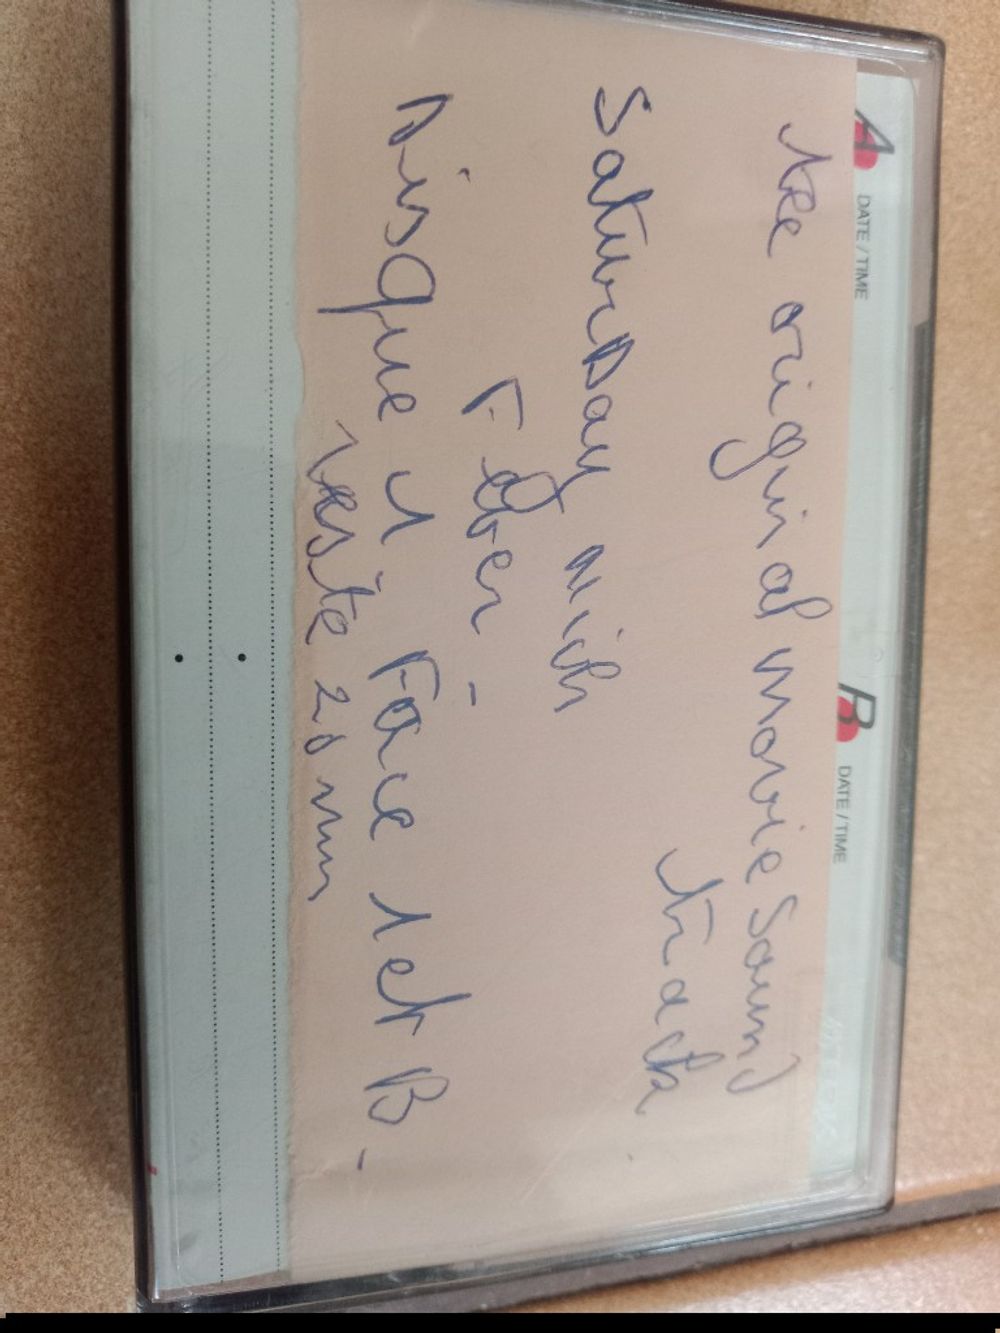 A DATE / TIME B DATE / TIME
the original movie Sound
track
SaturDay nich
Fever -
Disque 1 Face 1 et B -
reste 20 mm